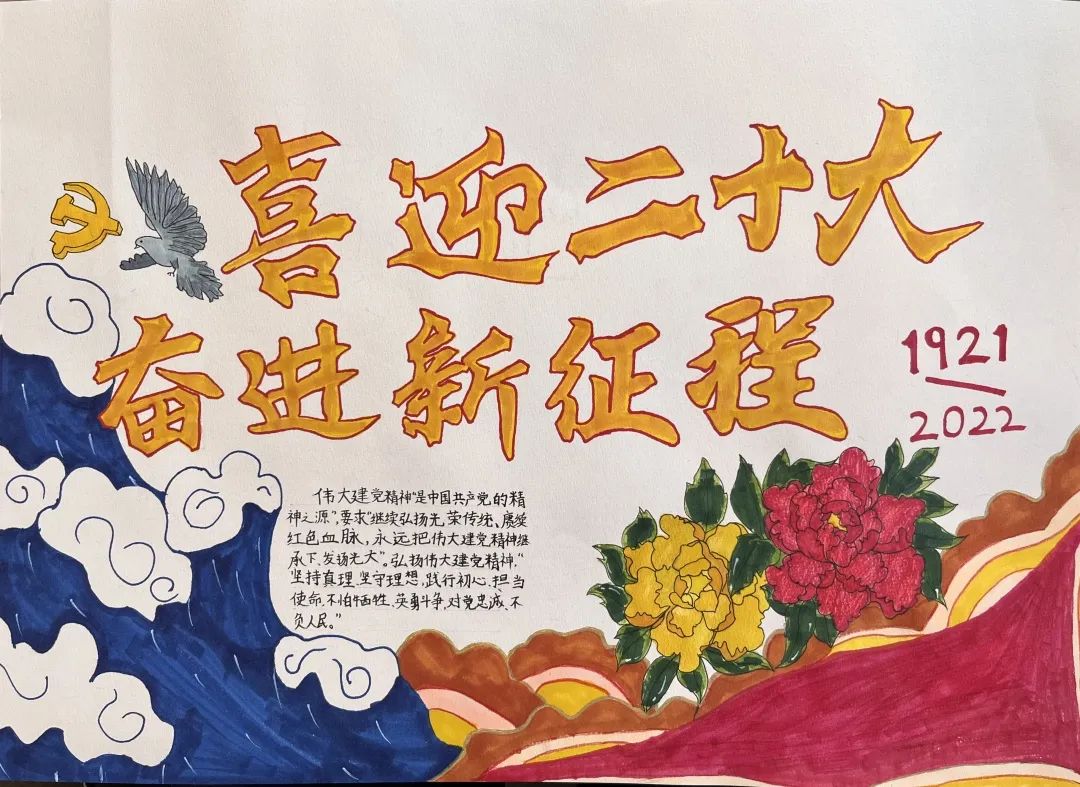 喜迎二十大
奋进新征程
1921
2022
伟大建党精神"是中国共产党的精
神之源",要求"继续弘扬光荣传统、赓续
红色血脉,永远把伟大建党精神继
承下、发扬光大"。弘扬伟大建党精神,"
坚持真理、坚守理想,践行初心、担当
使命,不怕牺牲、英勇斗争,对党忠诚、不
负人民。"